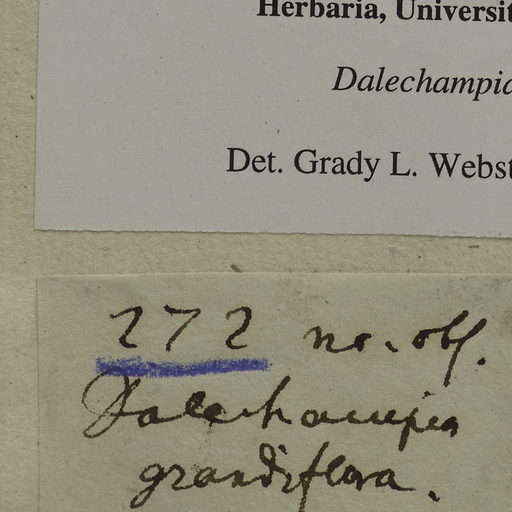 Herbaria, Universit
Dalechampia
Det. Grady L. Webst
272 no. obs.
Dalechampia
grandiflora.